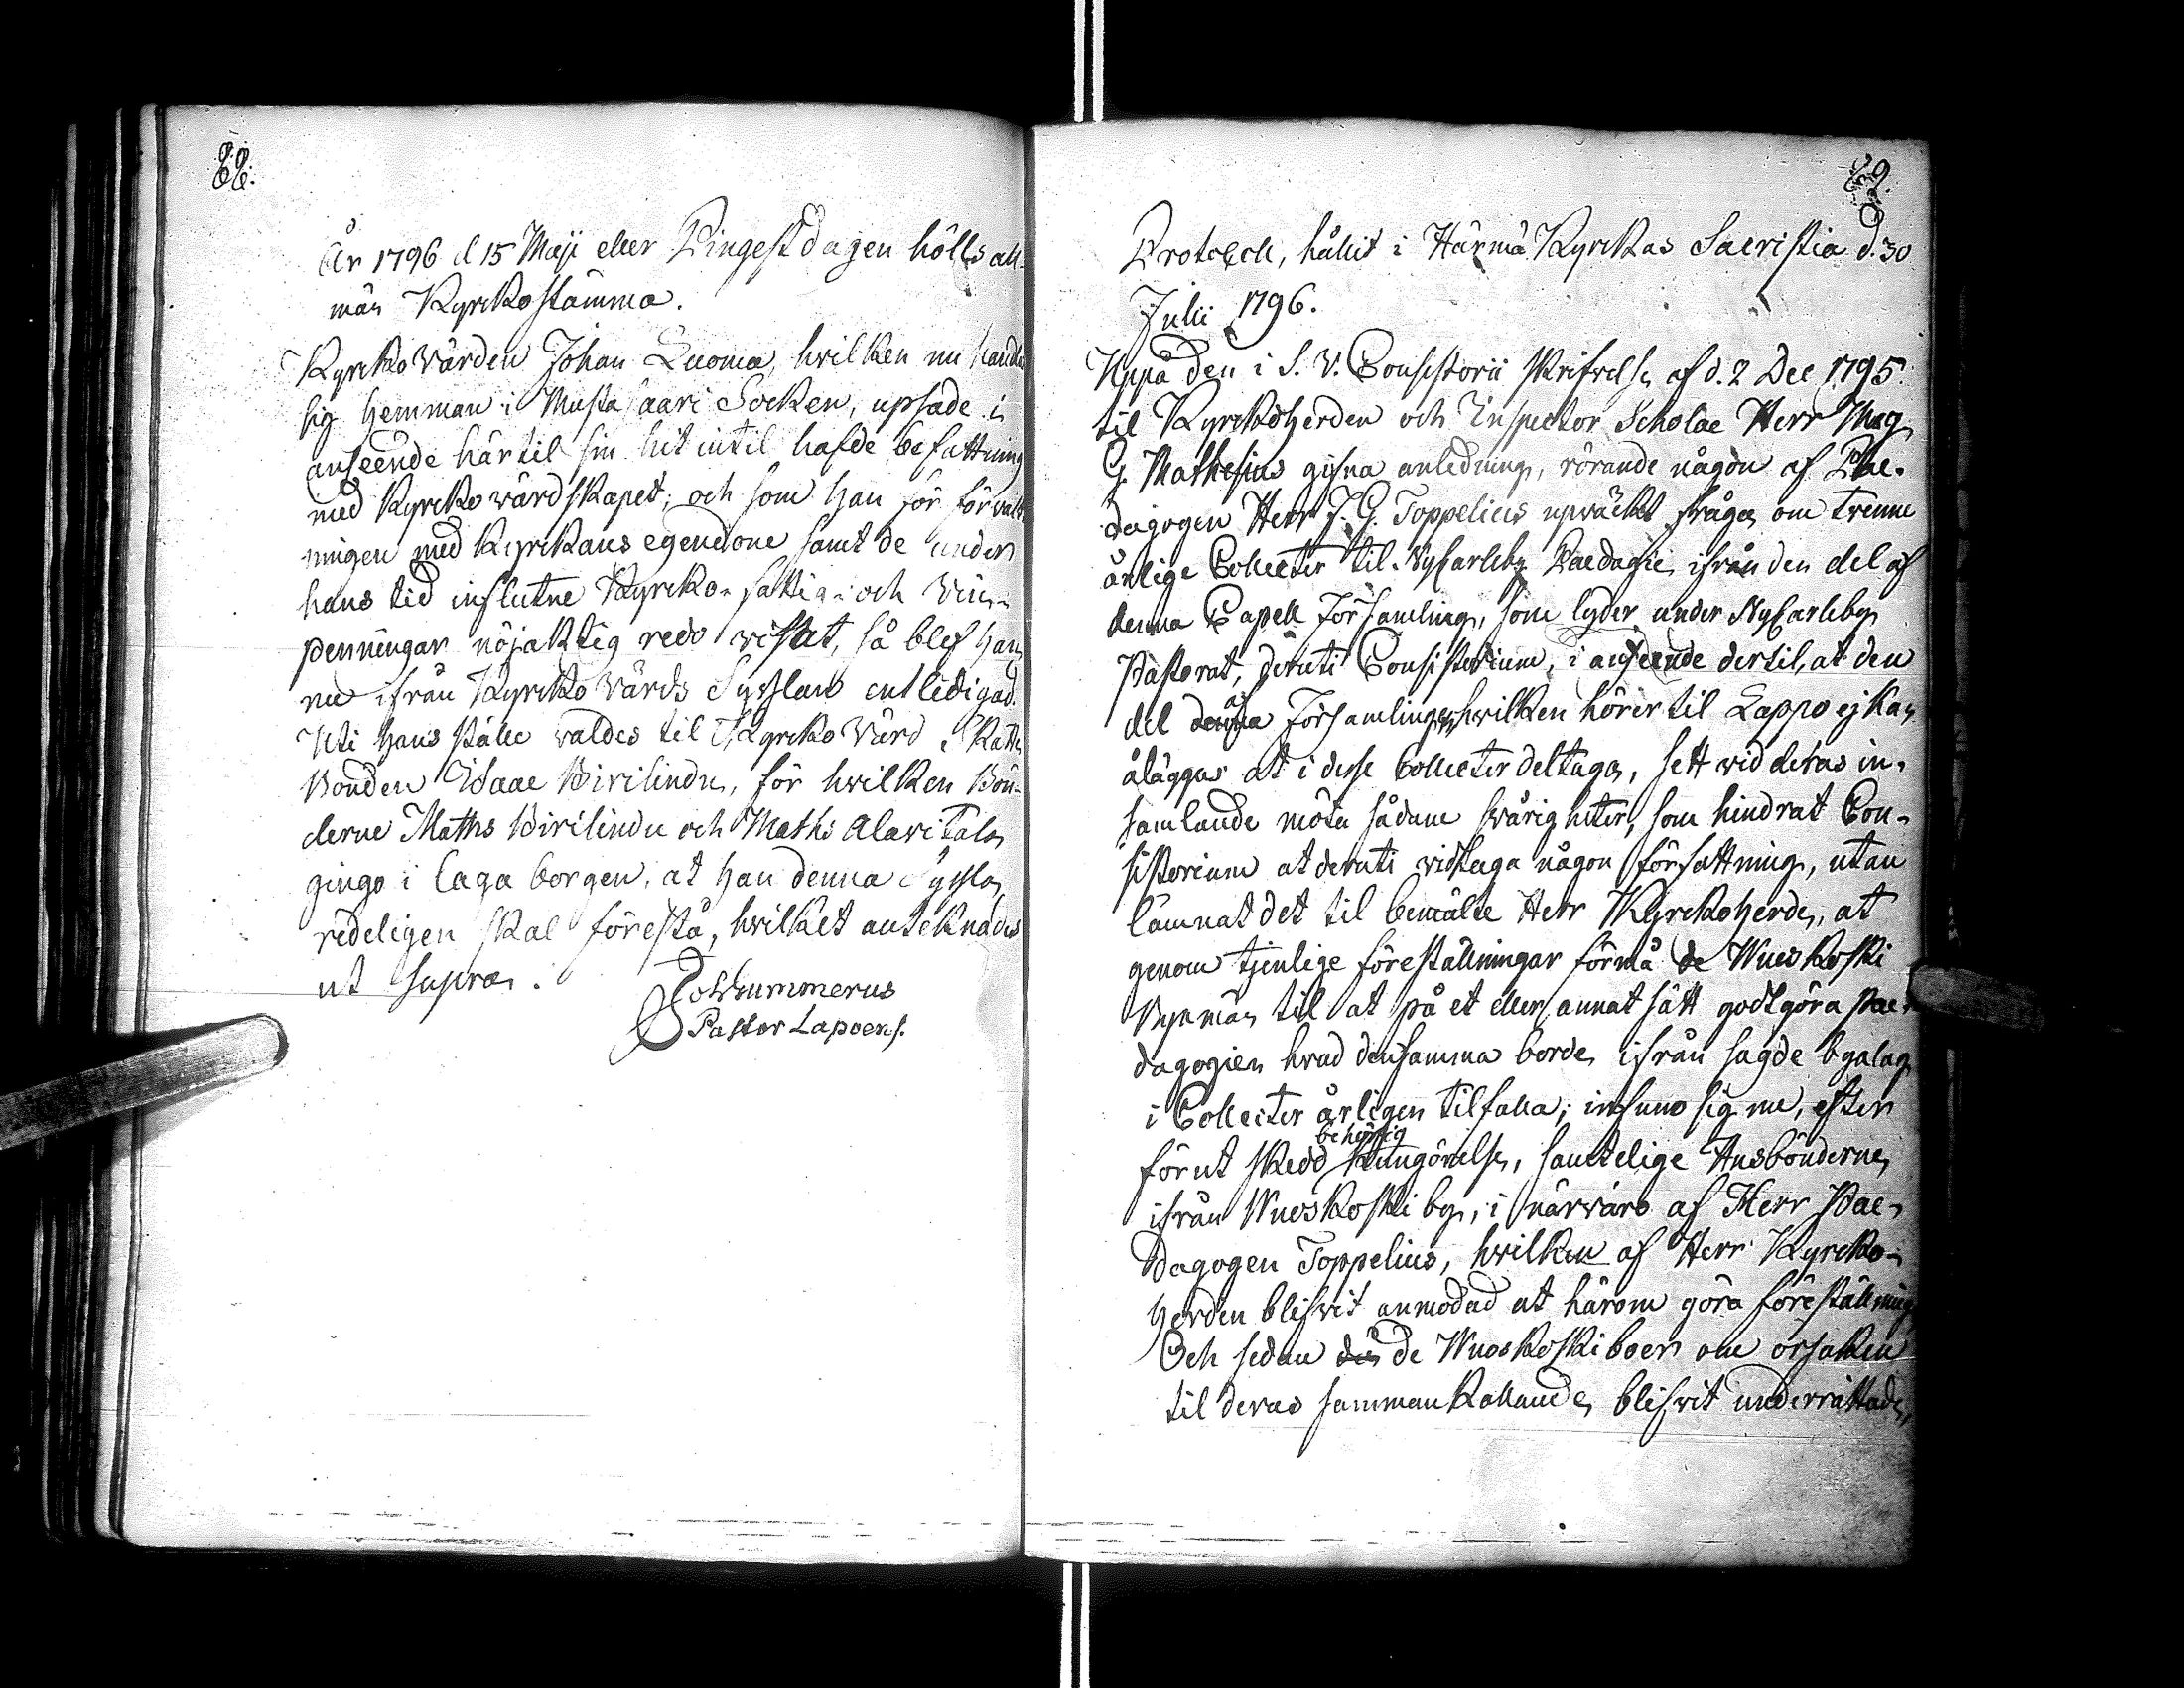 88.
År 1796 d 15 Maji eller Pingestdagen hölls all-
män Kyrckostämma.
Kyrcko Värden Johan Luoma, hvilken nu handlat
sig Hemman i Mustasaari Socken, upsade i
anseende härtil sin hit intil hafde befattning
med Kyrcko värdskapet; och som han för förvalt-
ningen med Kyrckans egendom samt de under
hans tid influtne Kyrcko- fattig- och Vin-
penningar nöjaktig redo visat, så blef han
nu ifrån Kyrcko Värds Sysslan entledigad.
Uti hans ställe valdes til Kyrcko Värd Skatte
Bonden Isaac Birilindu, för hvilken Bön-
derne Matts Birilindu och Matts Alaritala
gingo i laga borgen, at han denna Syssla
redeligen skal förestå, hvilket anteknades
ut supra.
Joh Kummerus
Pastor Lapoens.
89.
Protocoll, hållit i Härmä Kyrckas Sacristia d. 30
Julii 1796.
Uppå den i S. V. Consistorii skrifvelse af d. 2 Dec 1795
til Kyrckoherden och Inspector Scholae Herr Mag.
G. Mathesius gifna anledning, rörande någon af Pae-
dagogen Herr J. G. Toppelius upväckt fråga om trenne
årlige Collecter til NyCarleby Paedagogie ifrån den del af
denna Capell Församling, som lyder under NyCarleby
Pastorat, deruti Consistorium, i anseende dertil, at den
del af denna Församlingen hvilken hörer til Lappo ej kan
åläggas at i desse Collecter deltaga, sett vid deras in-
samlande möta sådane svårigheter, som hindrat Con-
sistorium at deruti vidtaga någon författning, utan
lämnat det til bemälte Herr Kyrckoherde, at
genom tjenlige föreställningar förmå de Wuoskoski
Bymän til at på et eller annat sätt godtgöra Pae-
dagogien hvad densamma borde ifrån sagde byalag
i Collecter årligen tilfalla; infunno sig nu, efter
förut skedd behörig kungörelse, samtelige Husbönderne
ifrån Wuoskoski by, i närvaro af Herr Pae-
dagogen Toppelius, hvilken af Herr Kyrcko-
herden blifvit anmodad at härom göra föreställning
Och sedan de Wuoskoskiboer om orsaken
til deras sammankallande blifvit underrättade,